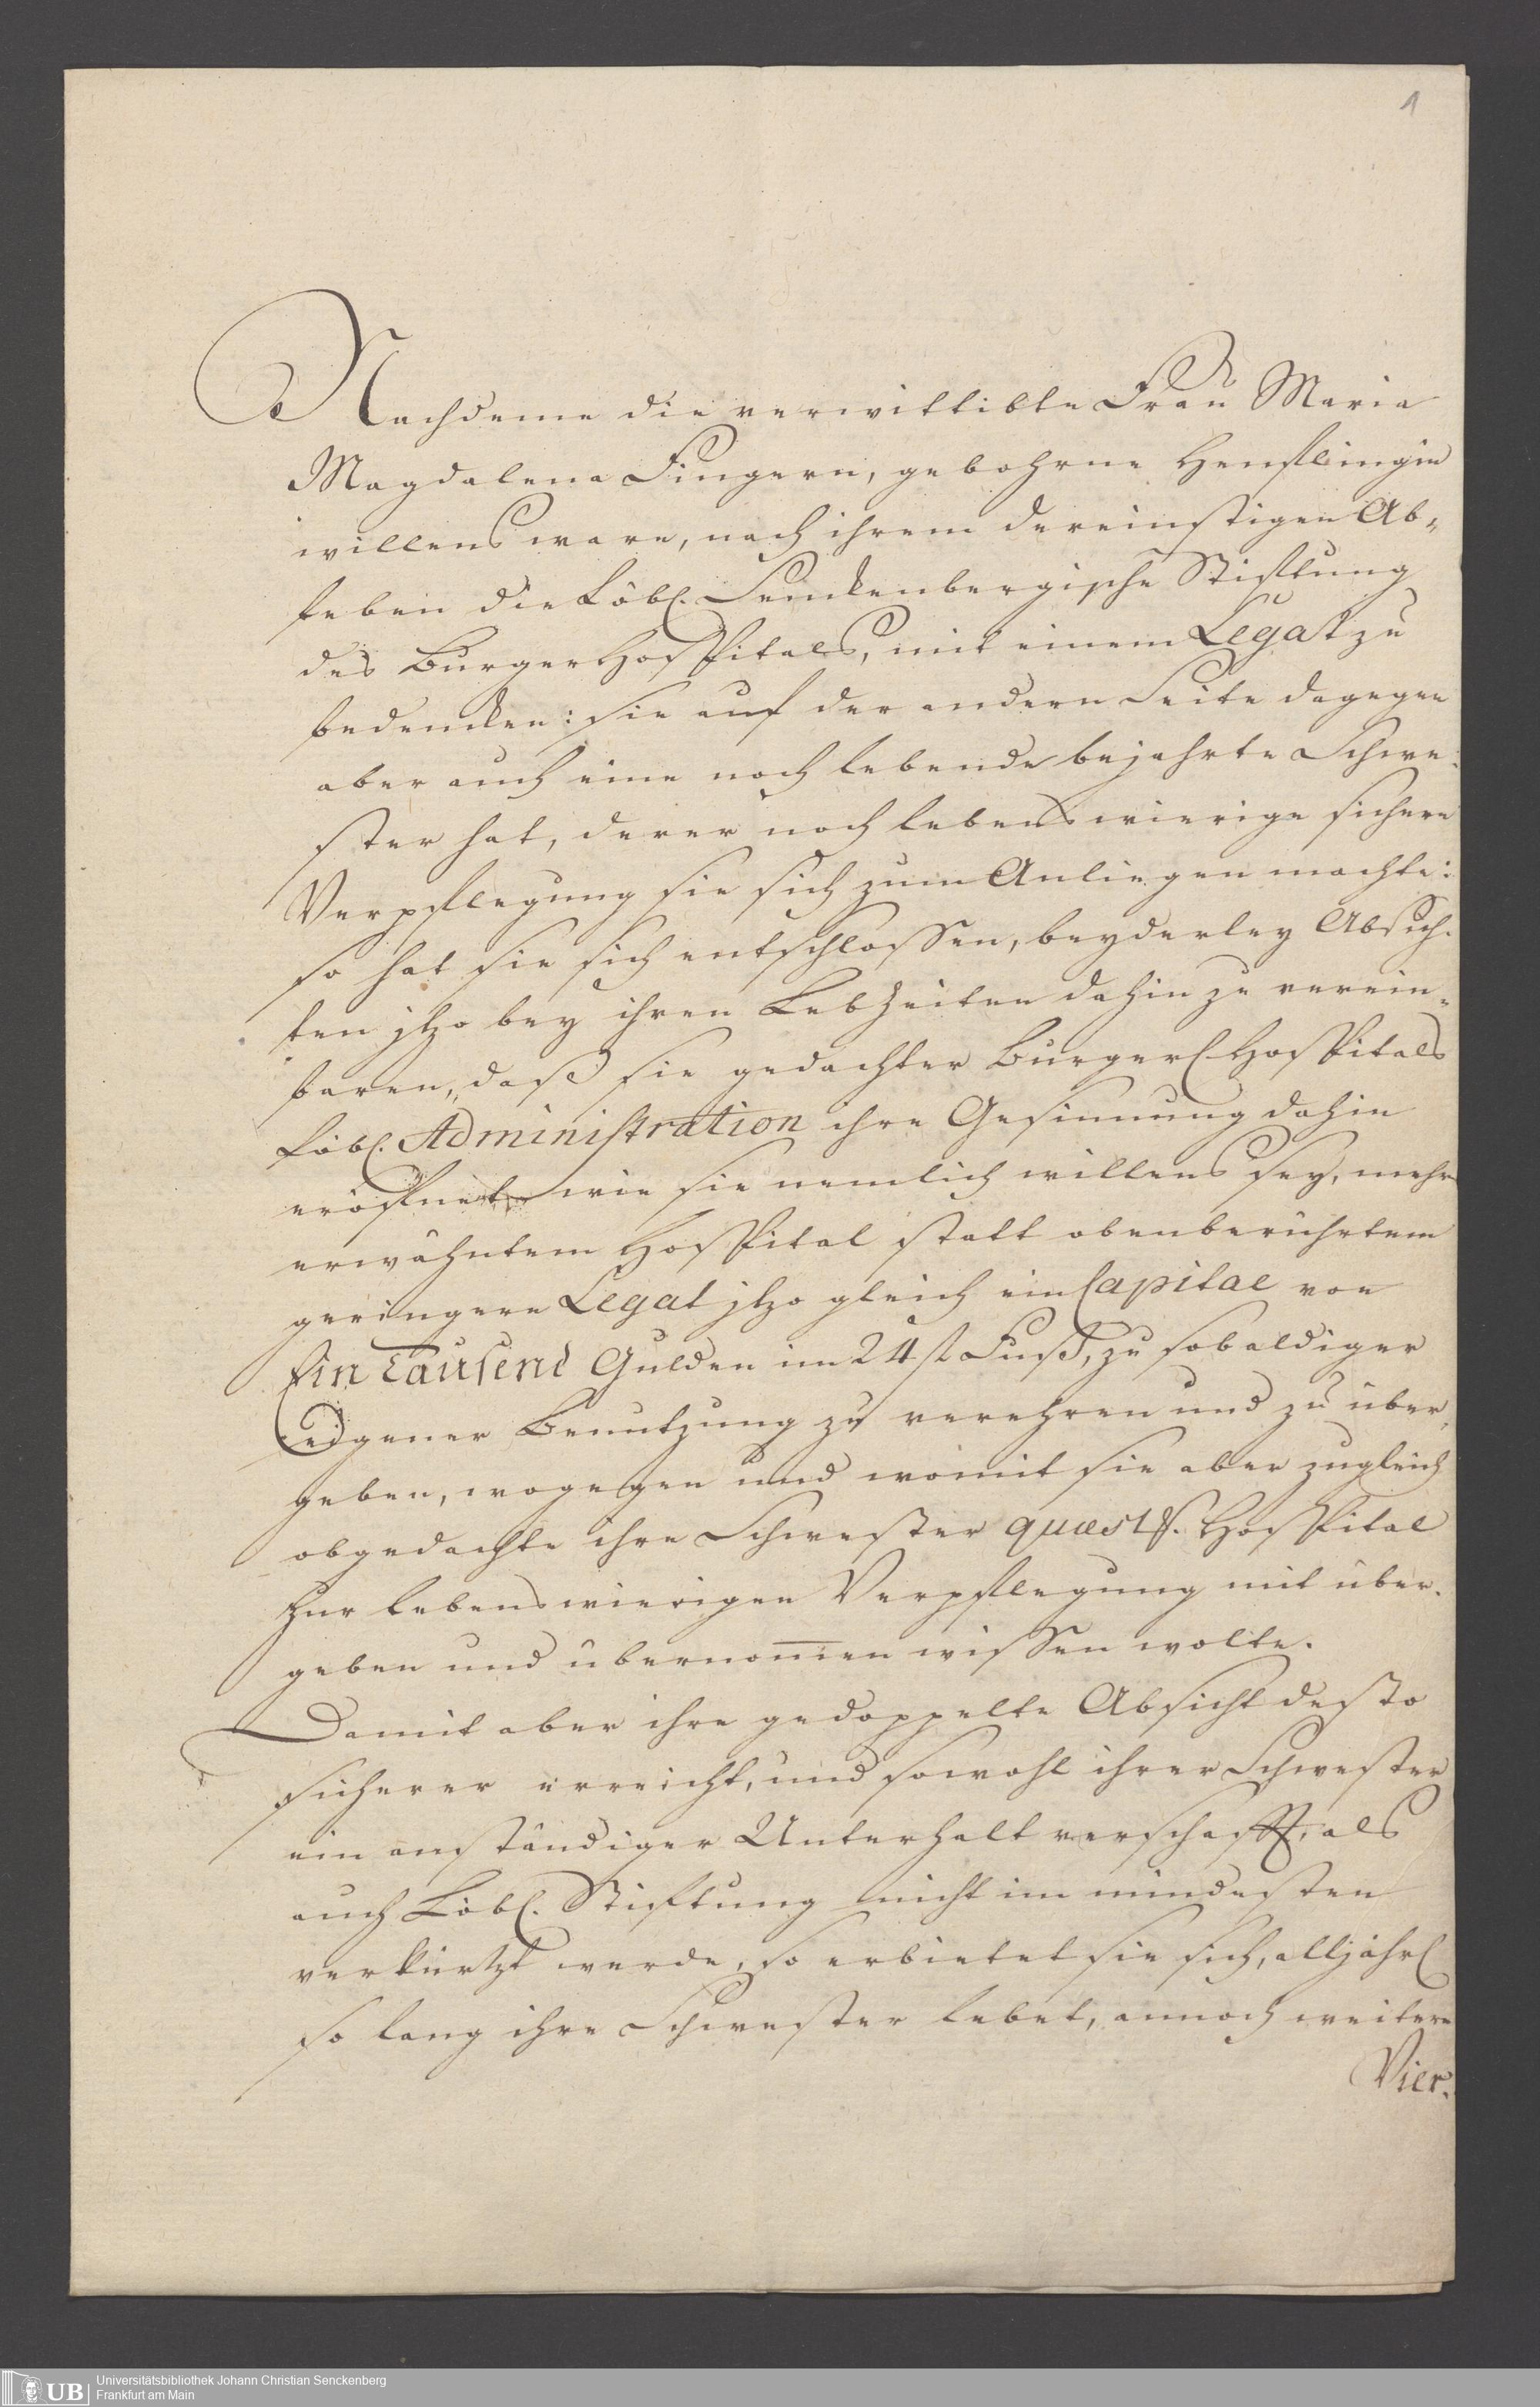 1
Nachdeme die verwittibte Frau Maria
Magdalena Fingern, gebohrne Henslingin
willens ware, nach ihrem dereinstigen Ab„
leben die Löbl. Senckenbergische Stiftung
des Burger Hospitals, mit einem Legat zu
bedencken: sie auf der andern Seite dagegen
aber auch eine noch lebende bejahrte Schwe¬
ster hat, derer noch lebenswierige sichere
Verpflegung sie sich zum Anliegen machte:
so hat sie sich entschlossen, beyderley Absich¬
ten jtzo bey ihren Lebzeiten dahin zu verein„
baren, daß sie gedachter Burgerl Hospitals
löbl. Administration ihre Gesinnung dahin
eröfnet wie sie nemlich willens sey, mehr
erwähntem Hospital statt obenberührtem
geringern Legat jtzo gleich ein Capital von
Ein Tausend Gulden im 24 fl Fuß, zu sobaldiger
eigener Benutzung zu verehren und zu über„
geben, wogegen und womit sie aber zugleich
obgedachte ihre Schwester quæst. Hospital
zur lebenswierigen Verpflegung mit über¬
geben und übernommen wissen wolte.
Damit aber ihre gedoppelte Absicht desto
sicherer erreicht, und sowohl ihrer Schwester
ein anständiger Unterhalt verschafft, als
auch Löbl. Stiftung nicht im mindesten
verkürtzt werde, so erbietet sie sich, alljährl
so lang ihre Schwester lebet, annoch weitere
Vier¬
UB
Universitätsbibliothek Johann Christian Senckenberg
Frankfurt am Main